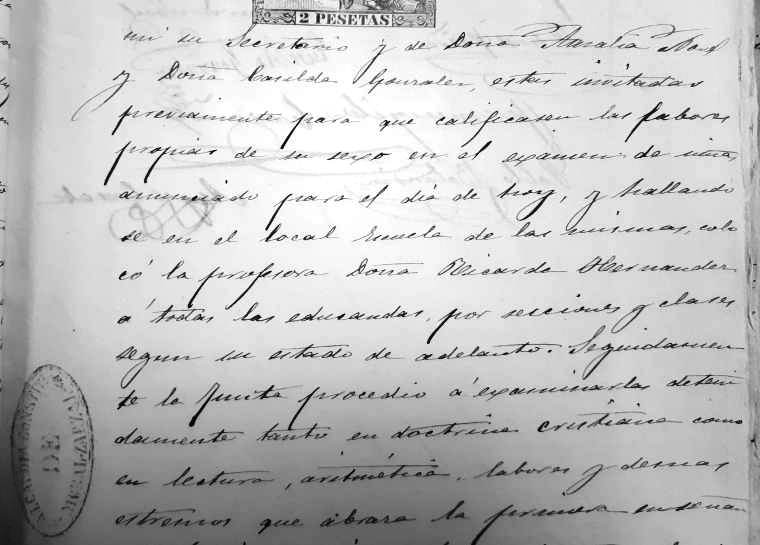 2 PESETAS
mi su Secretario y de Doña Amalia
y Doña Casilda Gonzalez, estas invitadas
previamente para que calificasen las labores
propias de su sexo en el examen de niñas
anunciado para el dia de hoy, y hallando
se en el local Escuela de las mismas, colo
có la profesora Doña Ricarda Hernandez
á todas las educandas, por secciones y clases
segun su estado de adelanto. Seguidamen
te la Junta procedio á examinarlas deteni
damente tanto en doctrina cristiana como
en lectura, aritmética, labores y demas
estremos que abraza la primera enseñan